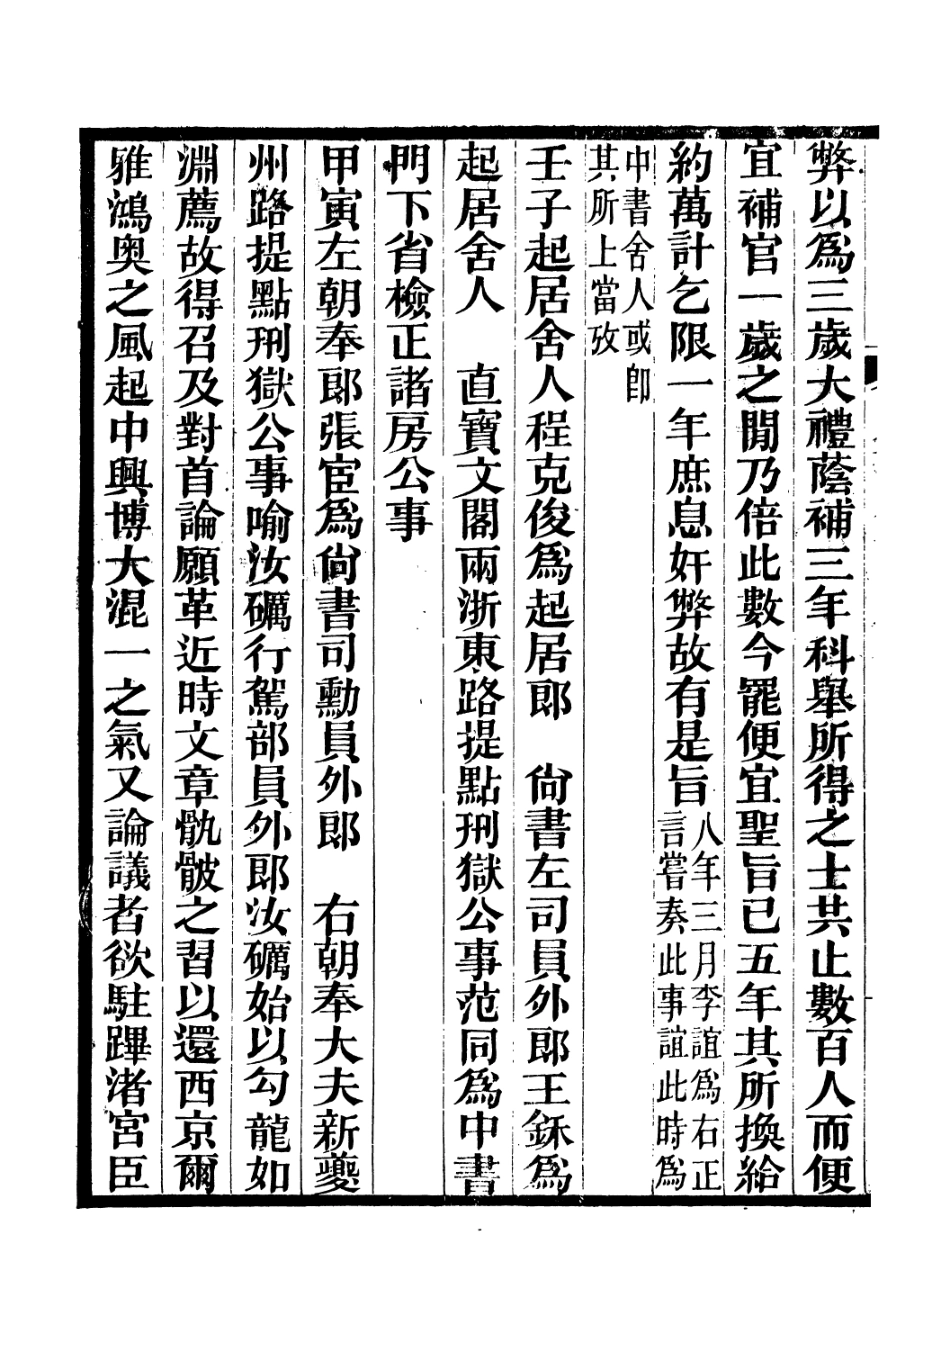 弊以爲三歲大禮蔭補三年科舉所得之士共止數百人而便
宜補官一歲之閒乃倍此數今罷便宜聖旨已五年其所換給
約萬計乞限一年庶息奸弊故有是旨八年三月李誼爲右正
言嘗奏此事誼此時爲
中書舍人或卽
其所上當攷
壬子起居舍人程克俊爲起居郎　尙書左司員外郎王鉌爲
起居舍人　直寶文閣兩浙東路提點刑獄公事范同爲中書
門下省檢正諸房公事
甲寅左朝奉郎張宦爲尙書司勳員外郎　右朝奉大夫新夔
州路提點刑獄公事喻汝礪行駕部員外郎汝礪始以勾龍如
淵薦故得召及對首論願革近時文章骩骳之習以還西京爾
雅鴻奧之風起中興博大混一之氣又論議者欲駐蹕渚宮臣